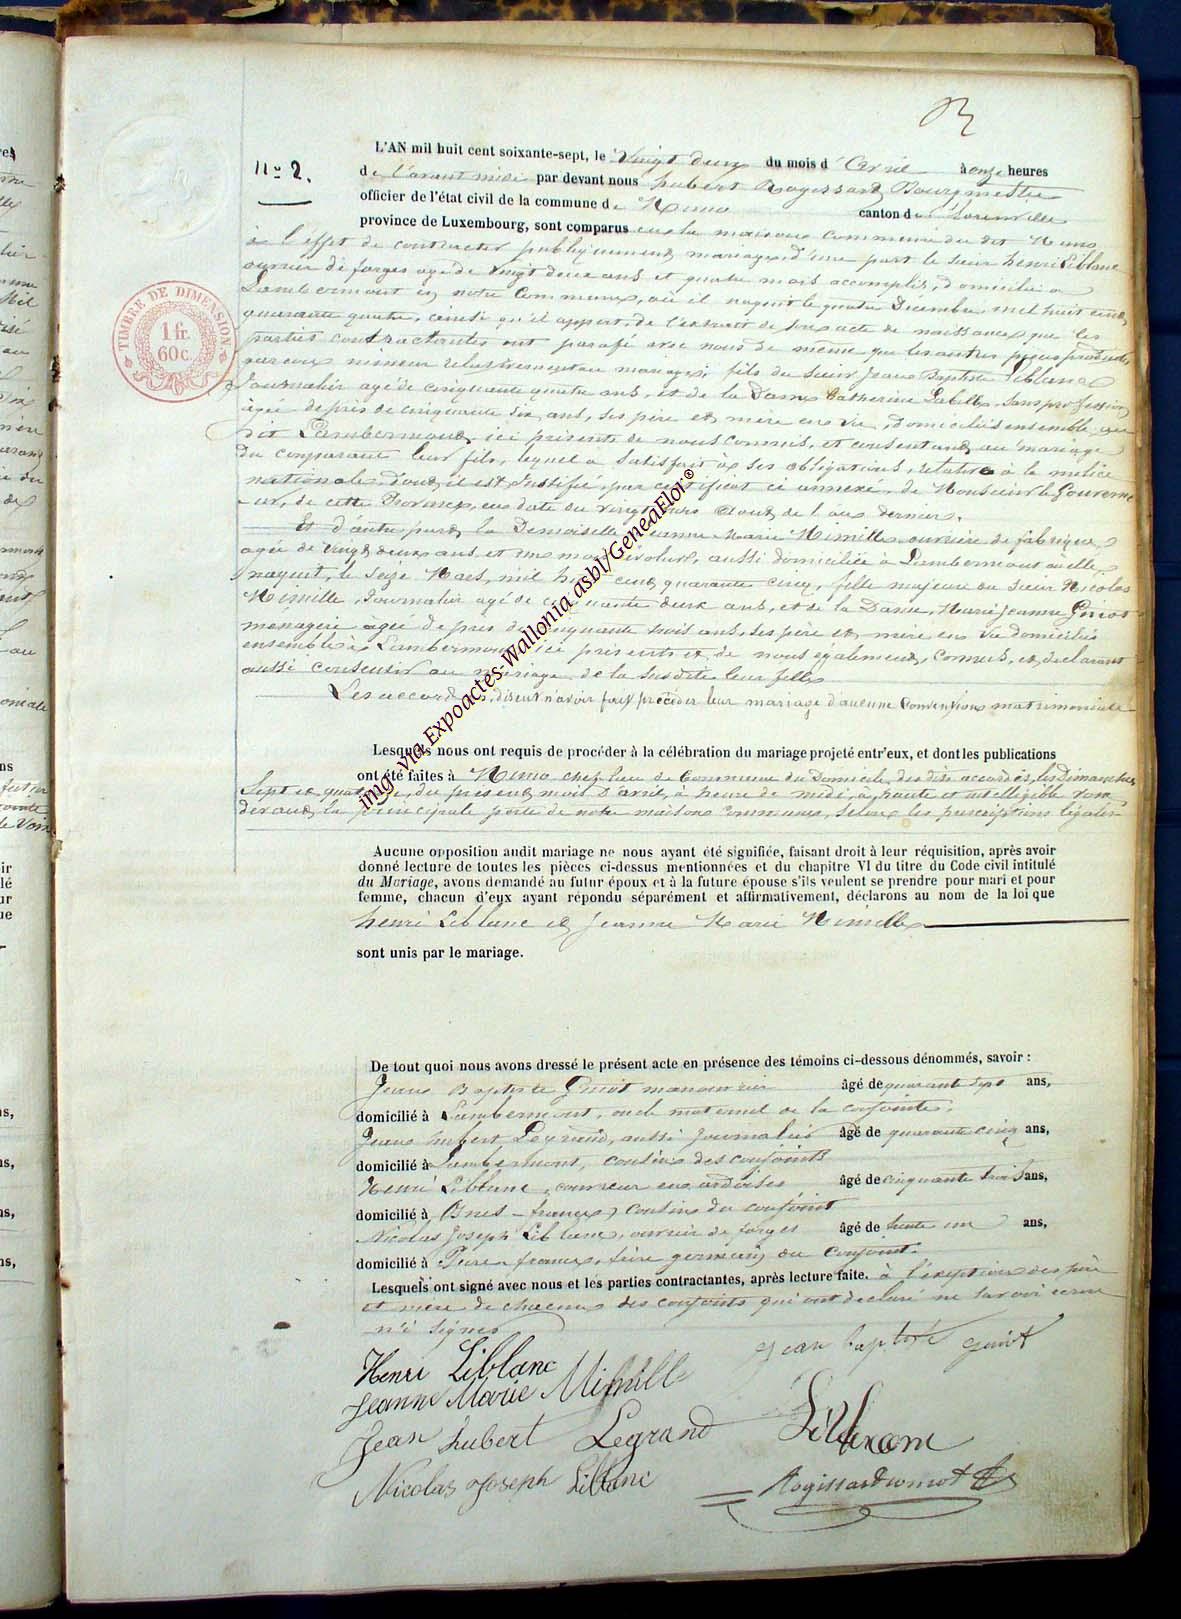 3
N° 2.
L'AN mil huit cent soixante-sept, le Vingt deux du mois d'Avril à onze heures
de l'avant midi par devant nous hubert Rogissart Bourgmestre
officier de l'état civil de la commune de Muno canton de Florenville
province de Luxembourg, sont comparus en la maison commune du dit Muno
à l'effet de contracter publiquement mariage, d'une part le sieur henri Liblanc
ouvrier de forges agé de vingt deux ans et quatre mois accomplis, domicilié à
Lambermont en notre Commune, où il naquit le quatre Décembre mil huit cent
quarante quatre, ainsi qu'il appert de l'extrait de son acte de naissance que les
parties contractantes ont parafé avec nous de même que les autres pièces produites,
mineur relativement au mariage, fils du sieur Jean Baptiste Liblanc
Journalier agé de cinquante quatre ans, et de la Dame Catherine Labelle, sans profession
agée de près de cinquante six ans, ses père et mère en vie, domiciliés ensemble au
dit Lambermont, ici présents de nous connus, et consentant au mariage
du comparant leur fils, lequel a satisfait à ses obligations, relative à la milice
nationale, dont il est justifié par certificat ci annexé, de Monsieur le Gouverne
ur, de cette Province, en date du vingt Aout de l'an dernier.
Et d'autre part, la Demoiselle Jeanne Marie Mimille ouvrière de fabrique,
agée de vingt deux ans et un mois révolus, aussi domiciliée à Lambermont où elle
naquit, le seize Mars, mil huit cent quarante cinq, fille majeure du sieur Nicolas
Mimille, Journalier agé de cinquante deux ans, et de la Dame, Marie Jeanne Guiot
menagère agée de près de cinquante trois ans, ses père et mère en vie domiciliés
ensemble à Lambermont ici présents et de nous également connus, et déclarant
aussi consentir au mariage de la susdite leur fille
Les accordés, disent n'avoir fait précéder leur mariage d'aucune Convention matrimoniale
Lesquels nous ont requis de procéder à la célébration du mariage projeté entr'eux, et dont les publications
ont été faites à Muno chef lieu de Commune du Domicile des dits accordés, les Dimanches
Sept et quatorze, du présent mois d'avril, à heure de midi, à haute et intelligible voix
devant la principale porte de notre maison Commune, selon les prescriptions légales
Aucune opposition audit mariage ne nous ayant été signifiée, faisant droit à leur réquisition, après avoir
donné lecture de toutes les pièces ci-dessus mentionnées et du chapitre VI du titre du Code civil intitulé
du Mariage, avons demandé au futur époux et à la future épouse s'ils veulent se prendre pour mari et pour
femme, chacun d'eux ayant répondu séparément et affirmativement, déclarons au nom de la loi que
henri Liblanc et Jeanne Marie Mimille
sont unis par le mariage.
De tout quoi nous avons dressé le présent acte en présence des témoins ci-dessous dénommés, savoir :
Jean Baptiste Guiot manouvrier âgé de quarante sept ans,
domicilié à Lambermont, oncle maternel de la conjointe,
Jean hubert Legrand, aussi journalier âgé de quarante cinq ans,
domicilié à Lambermont, cousin des conjoints
Henri Liblanc, couvreur en ardoises âgé de cinquante trois ans,
domicilié à france, cousin du conjoint
Nicolas Joseph Liblanc, ouvrier de forges âgé de trente un ans,
domicilié à Pure france, frère germain du conjoint.
Lesquels ont signé avec nous et les parties contractantes, après lecture faite. à l'exception des père
et mère de chacun des conjoints qui ont declaré ne savoir écrire
n'i signer
Henri Liblanc
jean baptiste guiot
Jeanne Marie Mimille
Jean hubert Legrand
Nicolas Joseph Liblanc
TIMBRE DE DIMENSION
1 fr.
60 c.
img. via Expoactes-Wallonia asbl/GeneaFlor©